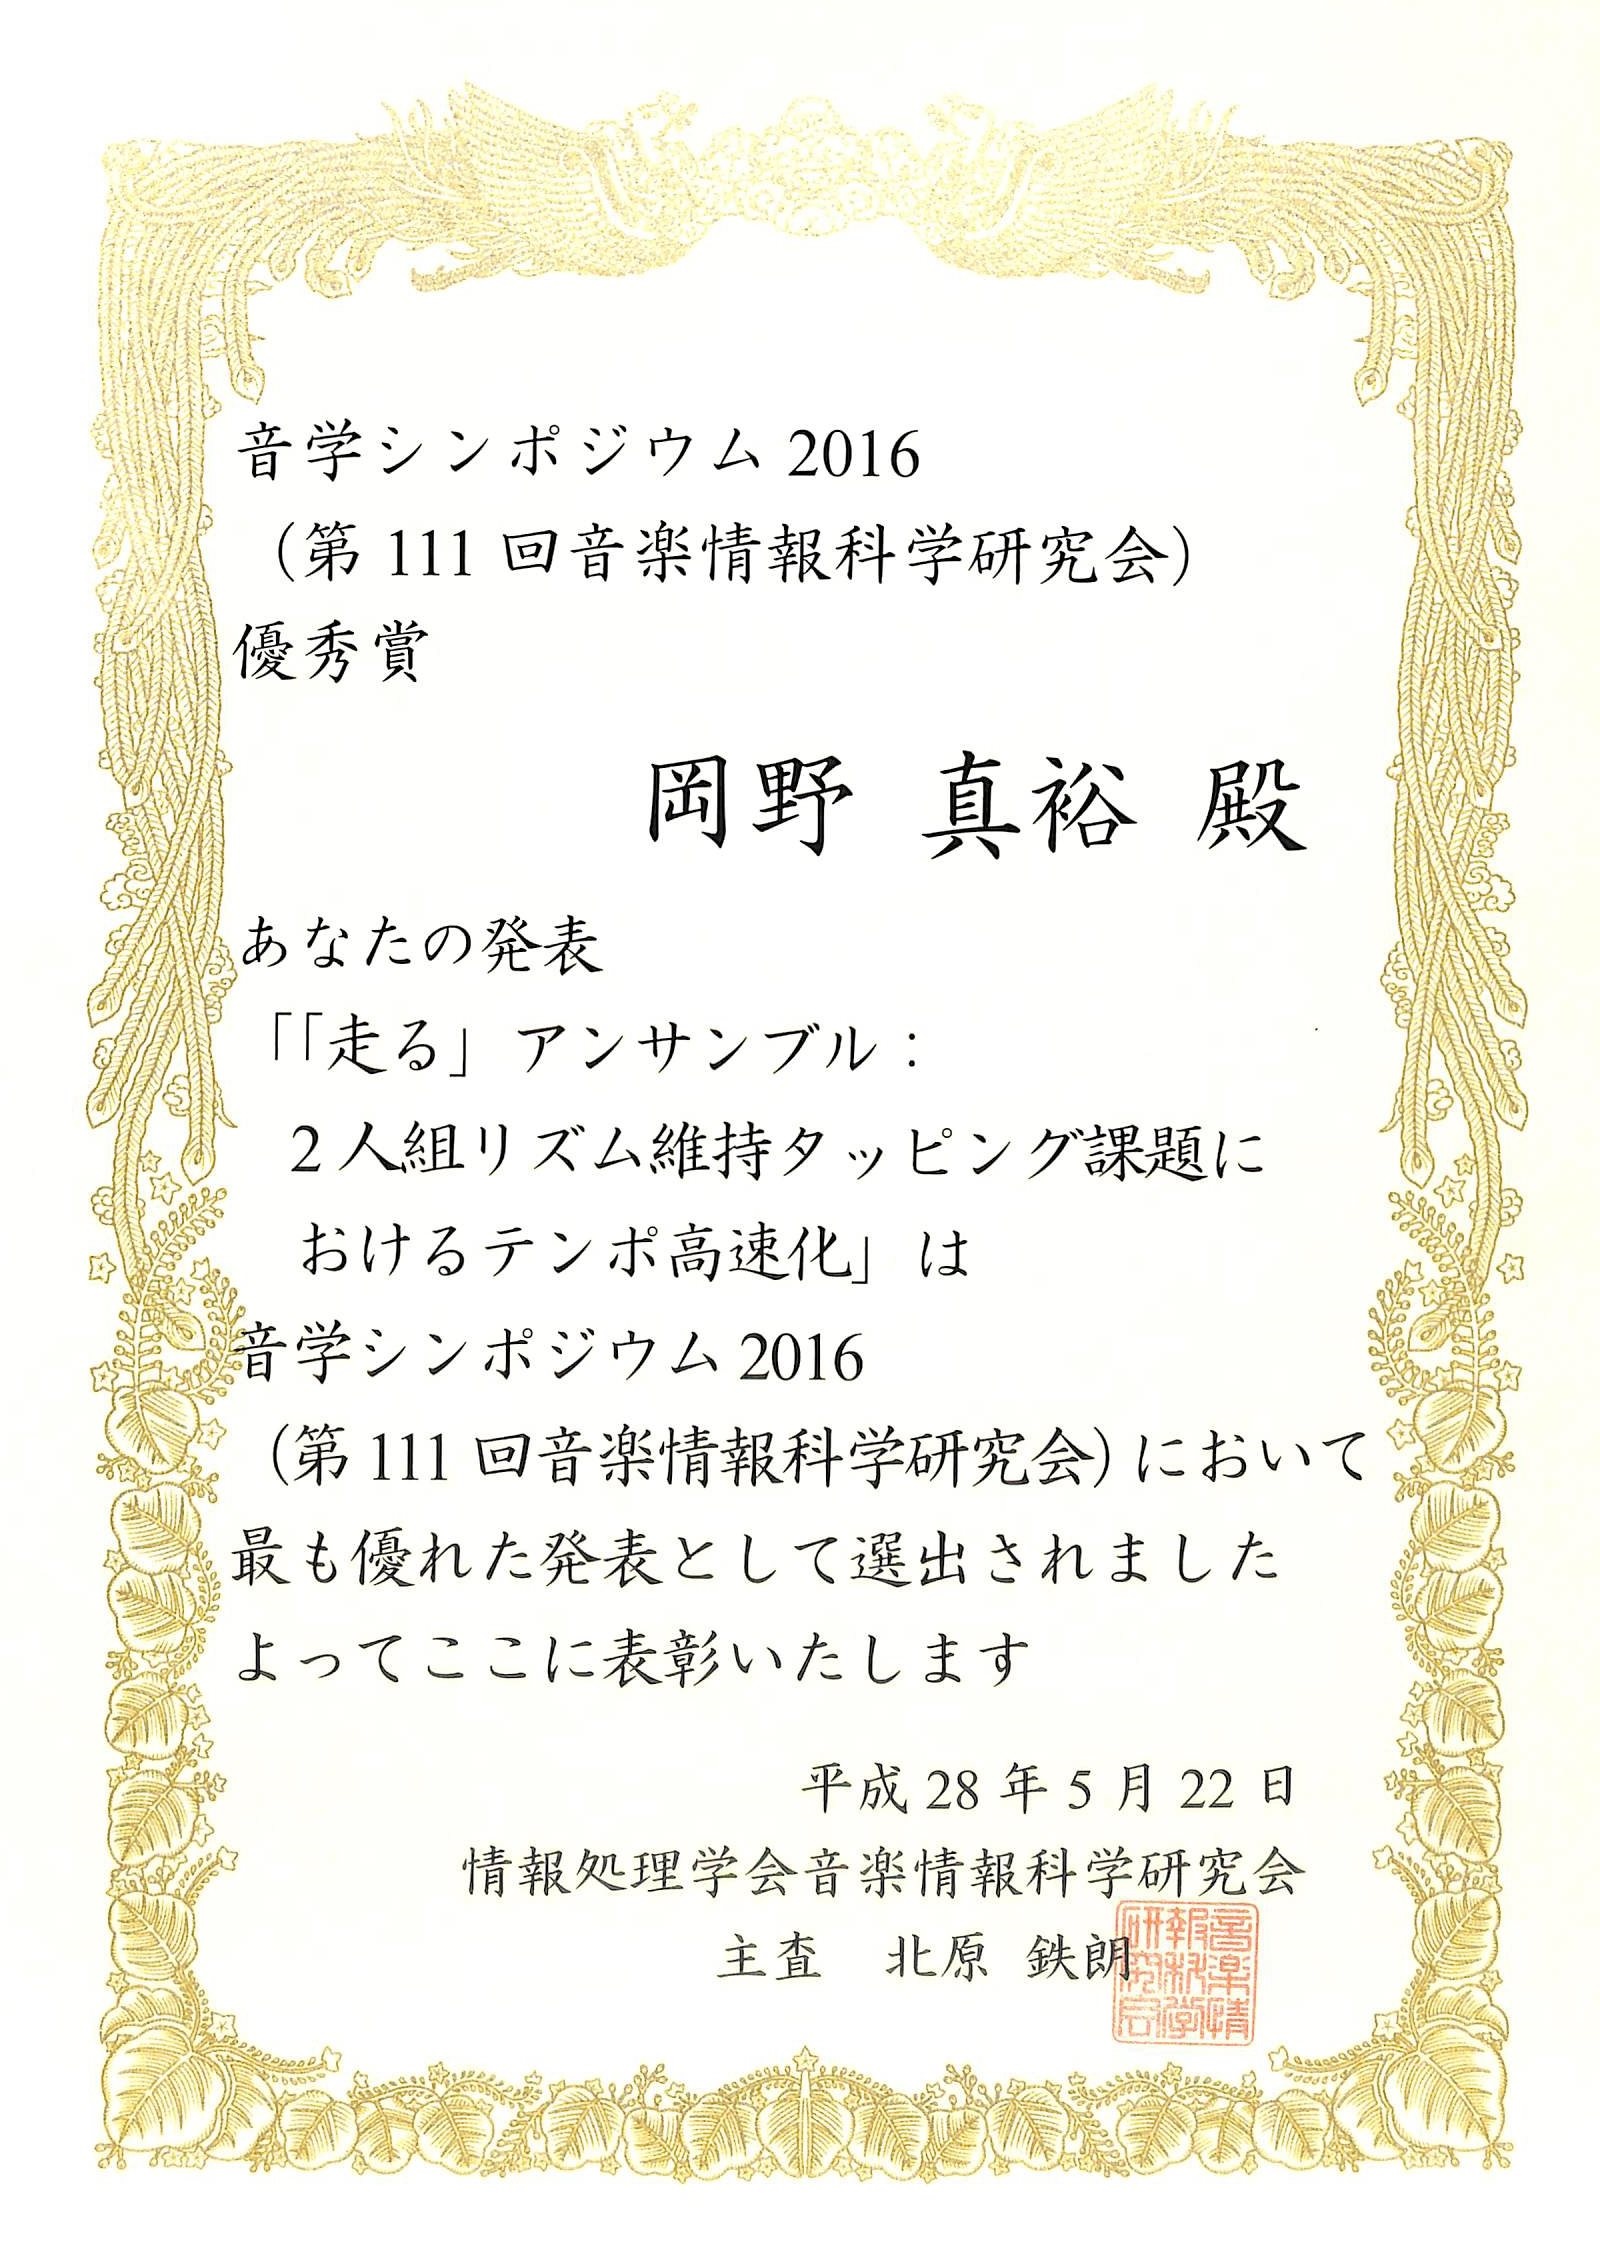 音学シンポジウム 2016
（第 111 回音楽情報科学研究会）
優秀賞
岡野 真裕 殿
あなたの発表
「「走る」アンサンブル：
2人組リズム維持タッピング課題に
おけるテンポ高速化」は
音学シンポジウム 2016
（第 111 回音楽情報科学研究会）において
最も優れた発表として選出されました
よってここに表彰いたします
平成 28 年 5 月 22 日
情報処理学会音楽情報科学研究会
主査 北原 鉄朗
音楽情
報科学
研究会